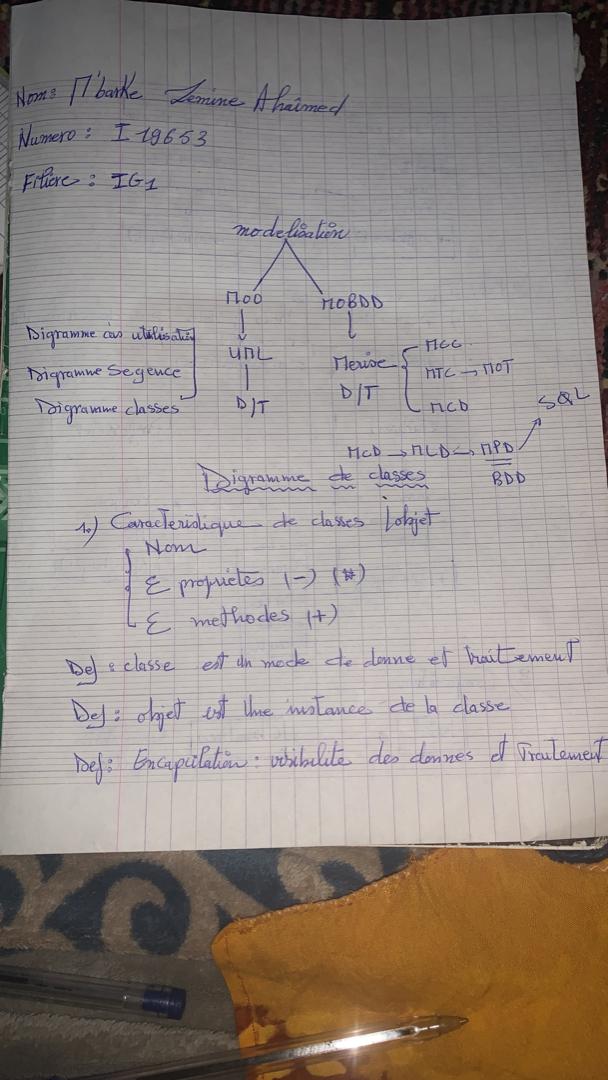 Nom: M'barke Lemine Ahaimed
Numero : I 19653
Filiere : IG1
modelisation
MOO MOBDD
Digramme cas utilisation
UML
Merise
MCC
Digramme Seqence
MTC → MOT
D/T
D/T
Digramme classes
MCD
SQL
MCD → MLD → MPD
BDD
Digramme de classes
1.) Caracteristique de classes / objet
Nom
Σ proprietes (-) (#)
Σ methodes (+)
Def : classe est un mode de donne et traitement
Def : objet est Une instance de la classe
Def : Encapsulation : visibilite des donnes et Traitement